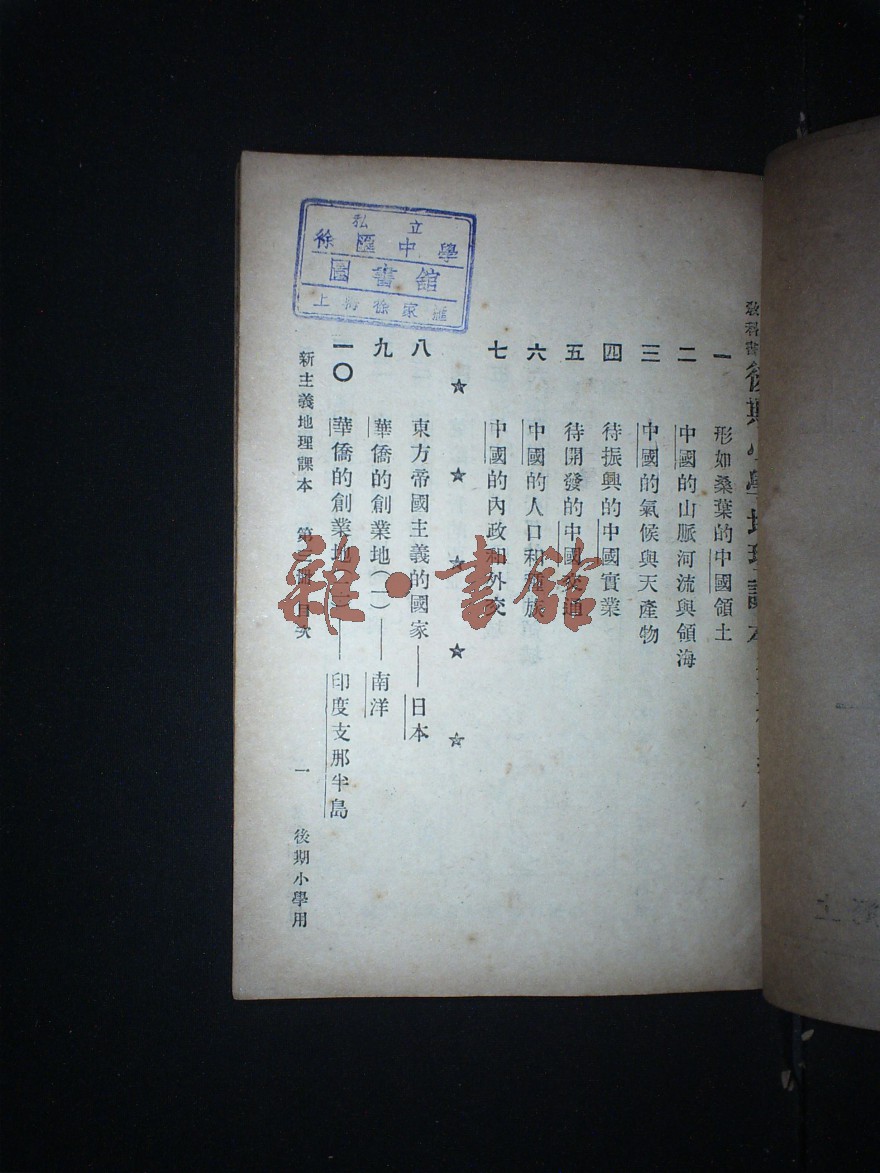 私立
徐匯中學
圖書館
上海徐家匯
教科書 後期小學地理課本
一 形如桑葉的中國領土
二 中國的山脈河流與領海
三 中國的氣候與天產物
四 待振興的中國實業
五 待開發的中國交通
六 中國的人口和種族
七 中國的內政和外交
☆ ☆ ☆ ☆ ☆
八 東方帝國主義的國家——日本
九 華僑的創業地(一)——南洋
一〇 華僑的創業地(二)——印度支那半島
新主義地理課本 第 冊 目次 一 後期小學用
雜·書館